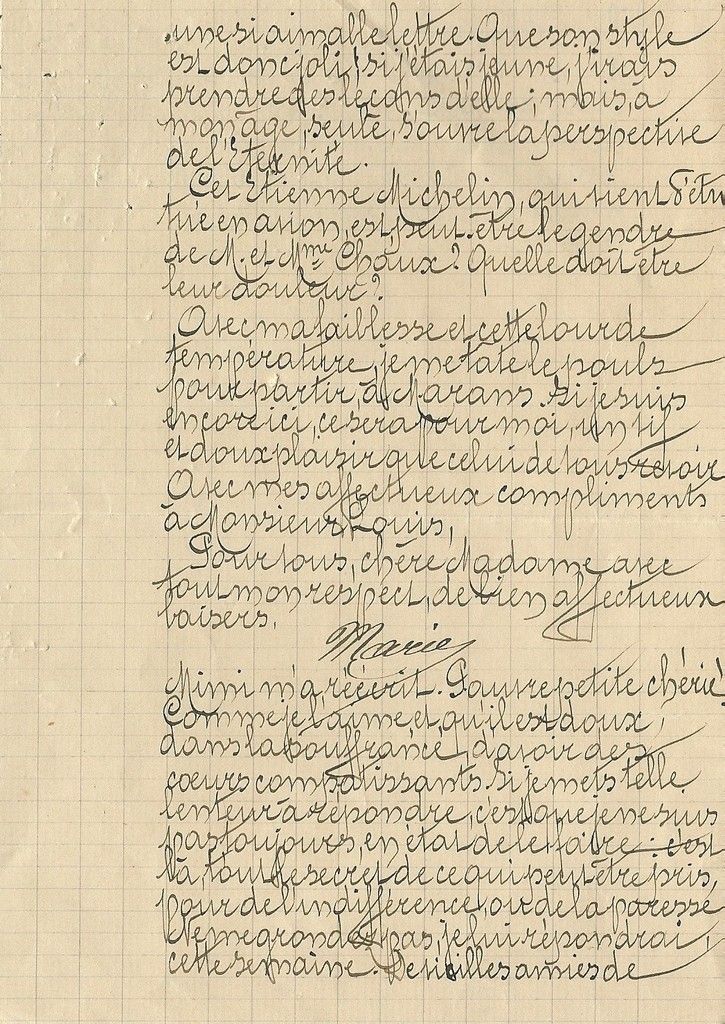 une si aimable lettre. Que son style
est donc joli ! si j'étais jeune, j'irais
prendre des leçons d'elle ; mais, à
mon âge, seule, s'ouvre la perspective
de l'Eternité.
Cet Etienne Michelin, qui vient d'être
tué en avion, est, peut-être le gendre
de M. et Mme Chaux ? Quelle doit être
leur douleur ?
Avec ma faiblesse et cette lourde
température, je me tâte le pouls
pour partir, à Marans. Si je suis
encore ici, ce sera pour moi, un vif
et doux plaisir que celui de vous revoir
Avec mes affectueux compliments
à Monsieur Louis,
Pour vous, chère Madame avec
tout mon respect, de bien affectueux
baisers.
Marie
Mimi m'a, récérit. Pauvre petite chérie,
Comme je l'aime et, qu'il est doux,
dans la souffrance, d'avoir des
cœurs compatissants. Si je mets telle
lenteur à répondre, c'est que je ne suis
pas toujours, en état de le faire : c'est
là, tout le secret de ce qui peut être pris,
pour de l'indifférence, ou de la paresse
Ne me grondez pas, je lui répondrai,
cette semaine. De vieilles amies de